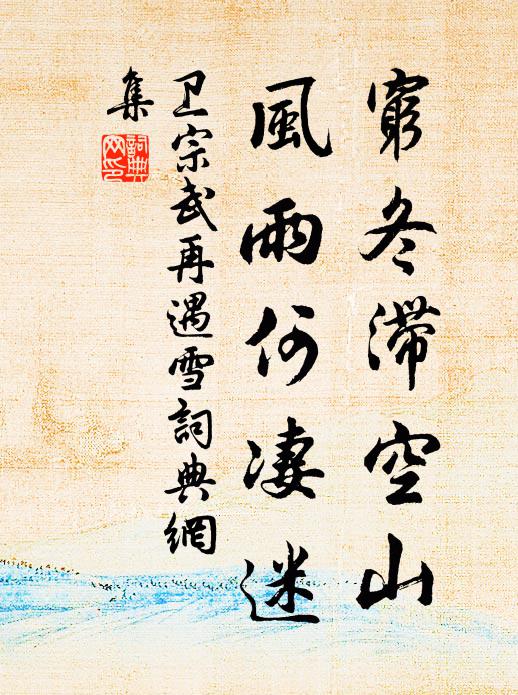 窮冬滯空山
風雨何凄迷
卫宗武再遇雪詞典網
集
詞典
网印